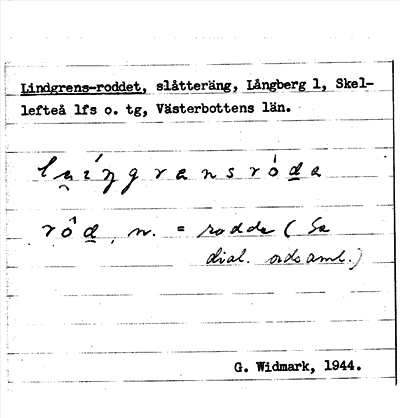 Lindgrens-roddet, slåtteräng, Långberg 1, Skel-
lefteå lfs o. tg, Västerbottens län.
rôd, n. = rodde (Se
dial. ordsaml.)
G. Widmark, 1944.